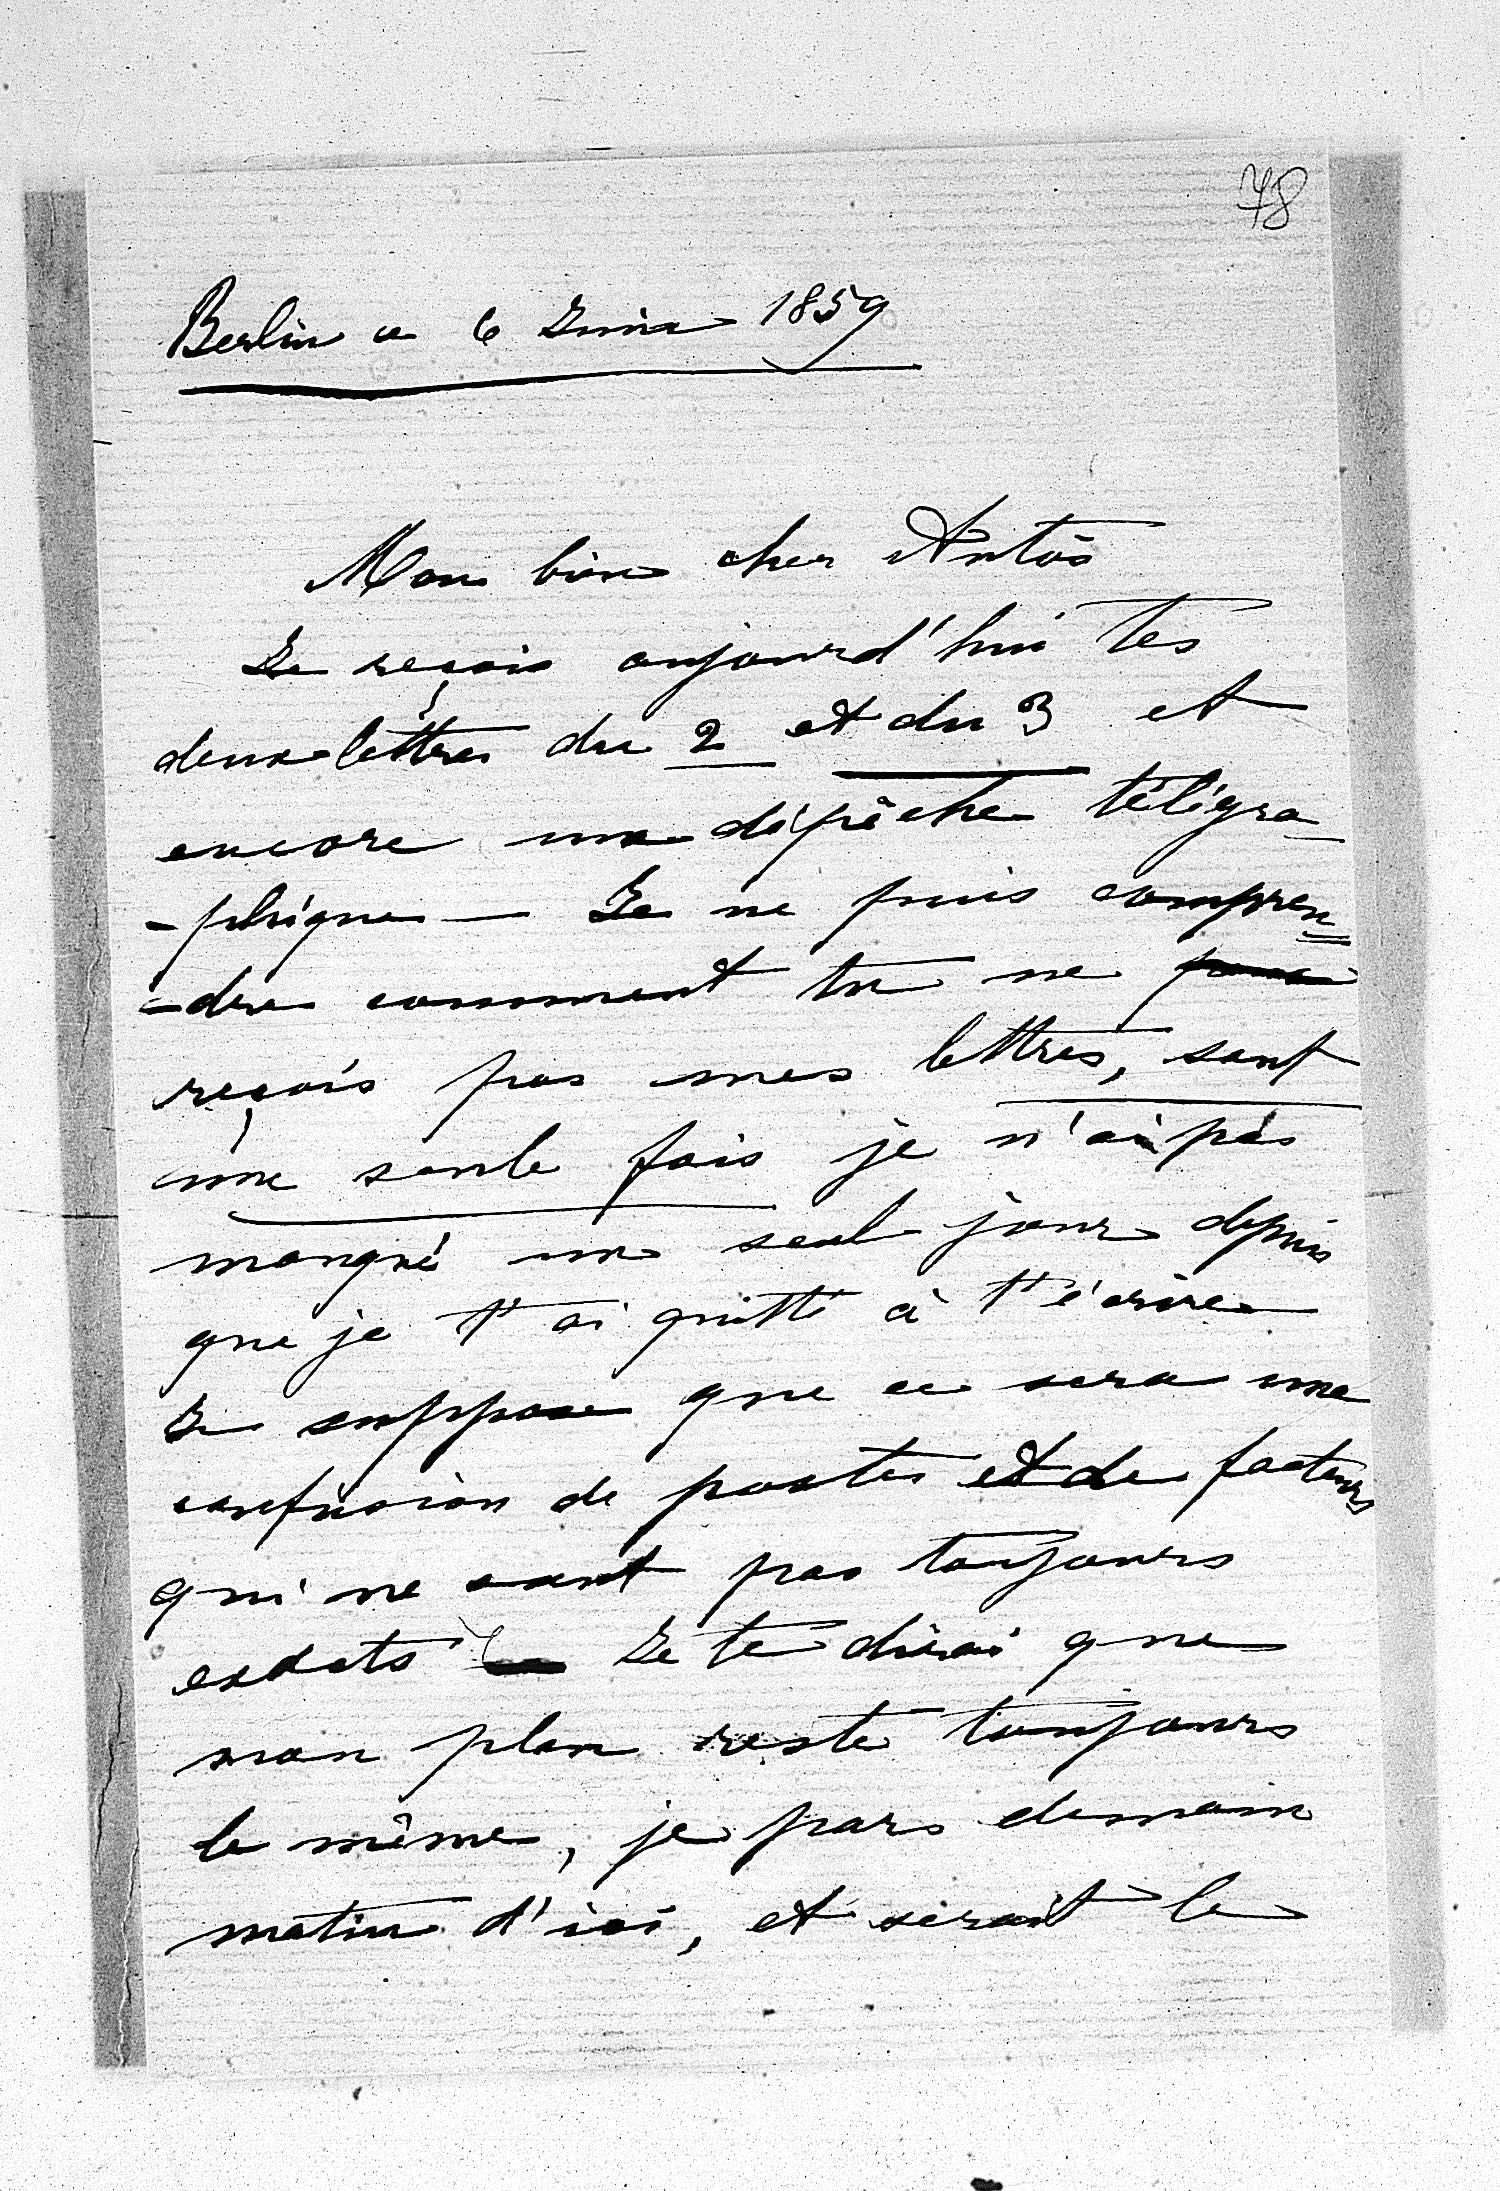 78
Berlin ce 6 Juin 1859
Mon bien cher Antos
Je reçois aujourd'hui tes
deux lettres du 2 et du 3 et
encore une dépêche télégra
-phique — Je ne puis compren
-dre comment tu ne
reçois pas mes lettres, sauf
une seule fois je n'ai pas
manqué un seul jour depuis
que je t'ai quitté à t'écrire
Je suppose que ce sera une
confusion de postes et de facteurs
qui ne sont pas toujours
exacts Je te dirai que
mon plan reste toujours
le même, je pars demain
matin d'ici, et serait le